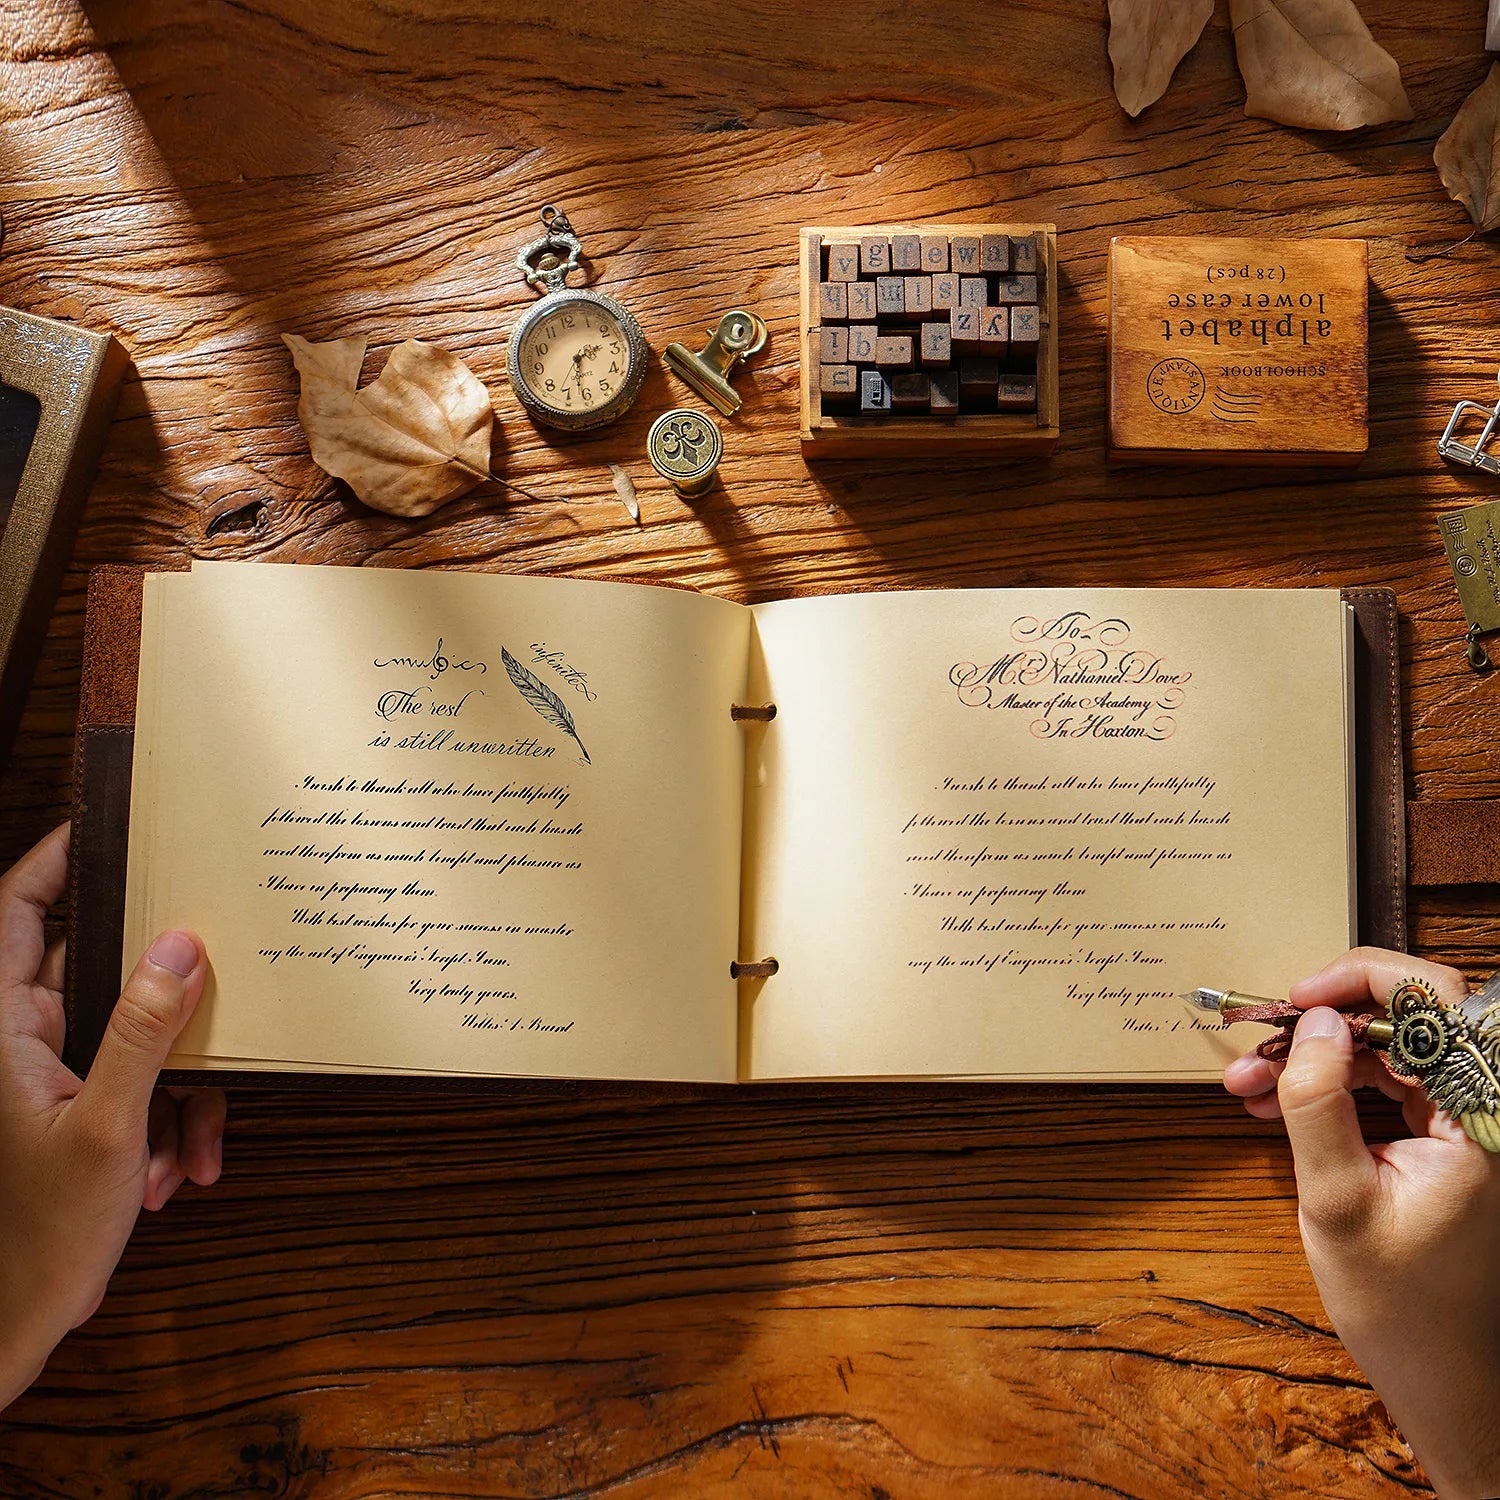 SCHOOLBOOK
ANTIQUE STAMP
alphabet
lower case
(28 pcs)
v g f e w a n
z y x
music
infinite
The rest
is still unwritten
I wish to thank all who have faithfully
followed the lessons and trust that each has de
rived therefrom as much benefit and pleasure as
I have in preparing them.
With best wishes for your success in master
ing the art of Engrosser's Script, I am,
Very truly yours,
To
Mr. Nathaniel Dove
Master of the Academy
In Hoxton
I wish to thank all who have faithfully
followed the lessons and trust that each has de
rived therefrom as much benefit and pleasure as
I have in preparing them
With best wishes for your success in master
ing the art of Engrosser's Script, I am,
Very truly yours,